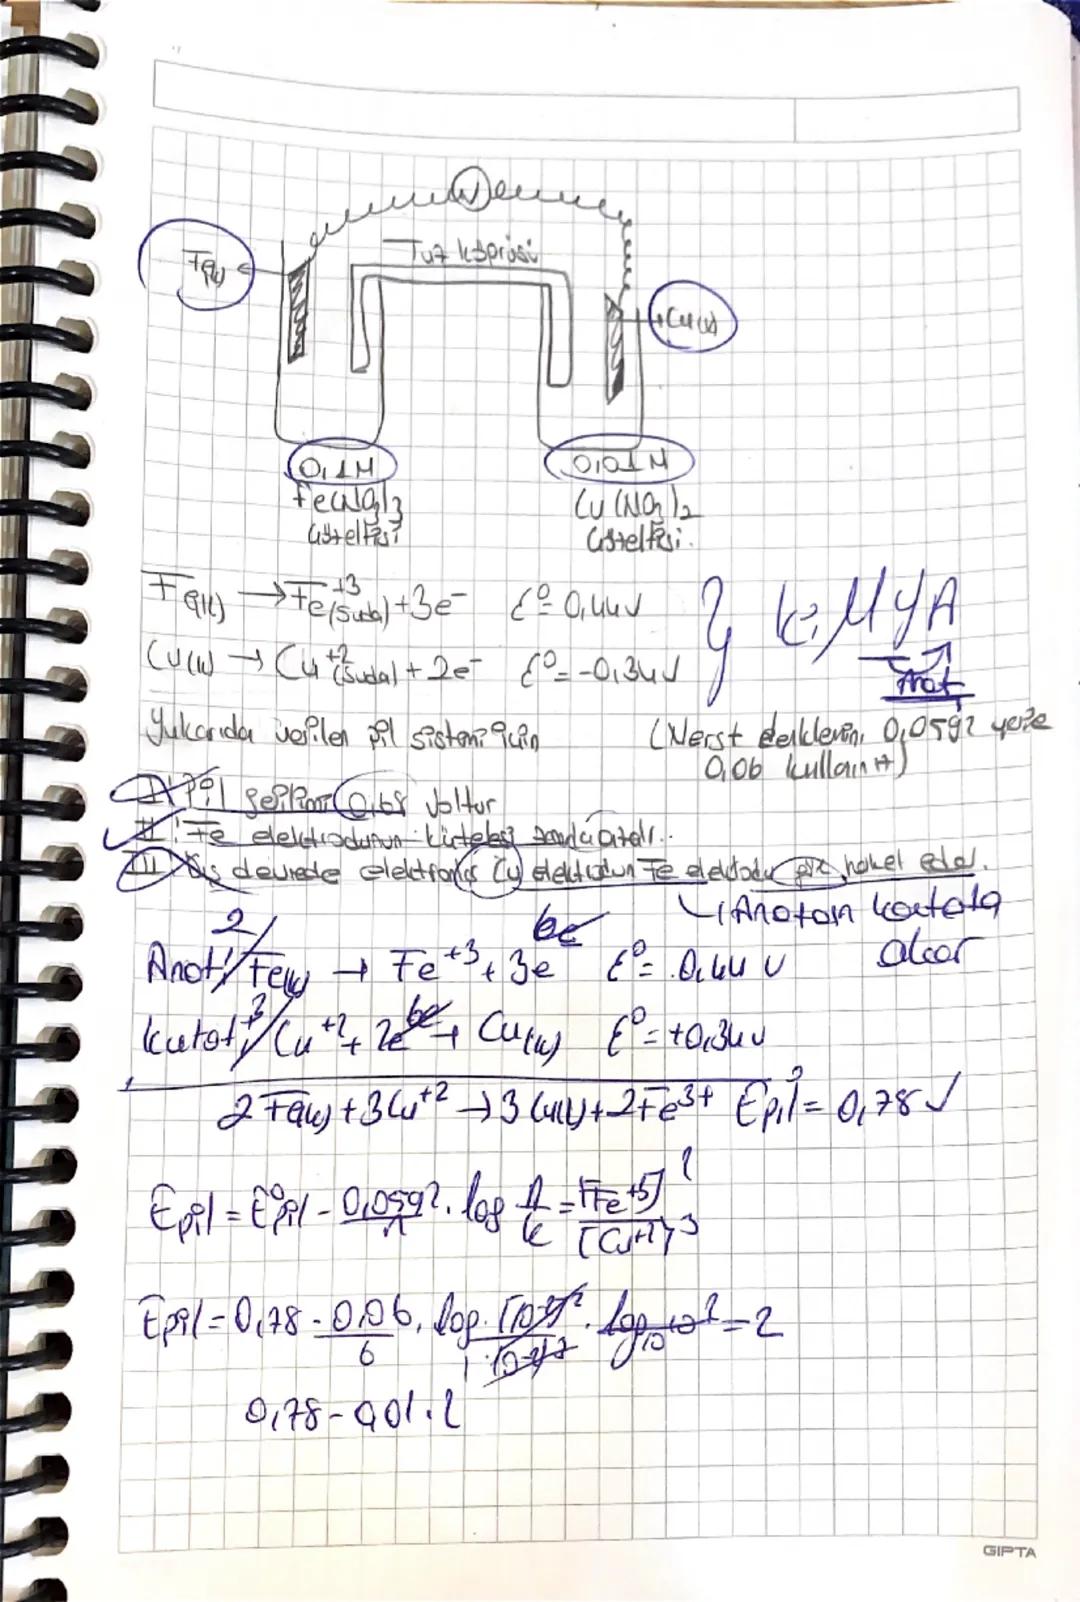 Tuz köprüsü
Fe(k)
Cu(k)
0,1M
0,01M
Fe(NO3)3
Cu(NO3)2
Çözeltisi
Çözeltisi.
Fe(k) → Fe+3(suda) + 3e- ε°= 0,44V
Cu(k) → Cu+2(suda) + 2e- ε°= -0,34V
KİMYA
Anot
Yukarıda verilen pil sistemi için
(Nerst denklemin, 0,0592 yerine
0,06
I. Pil gerilimi 0,68 voltur
II. Fe elektrodunun kütlesi zamanla azalır..
III. Dış devrede elektronlar Cu elektrodun Fe elektrodu hareket eder.
(Anotan katota
akar
2/ 6e
Anot: Fe(k) → Fe+3 + 3e ε°= 0,44 V
3 6e
katot: Cu+2 + 2e → Cu(k) ε°= +0,34V
2 Fe(k) + 3Cu+2 → 3 Cu(k) + 2Fe3+ E°pil = 0,78 V
Epil = E°pil - 0,0592/n . log = [Fe+3]2/[Cu+2]3
Epil = 0,78 - 0,06/6 . log 10 = 2
0,78 - 0,01 . 2
GIPTA